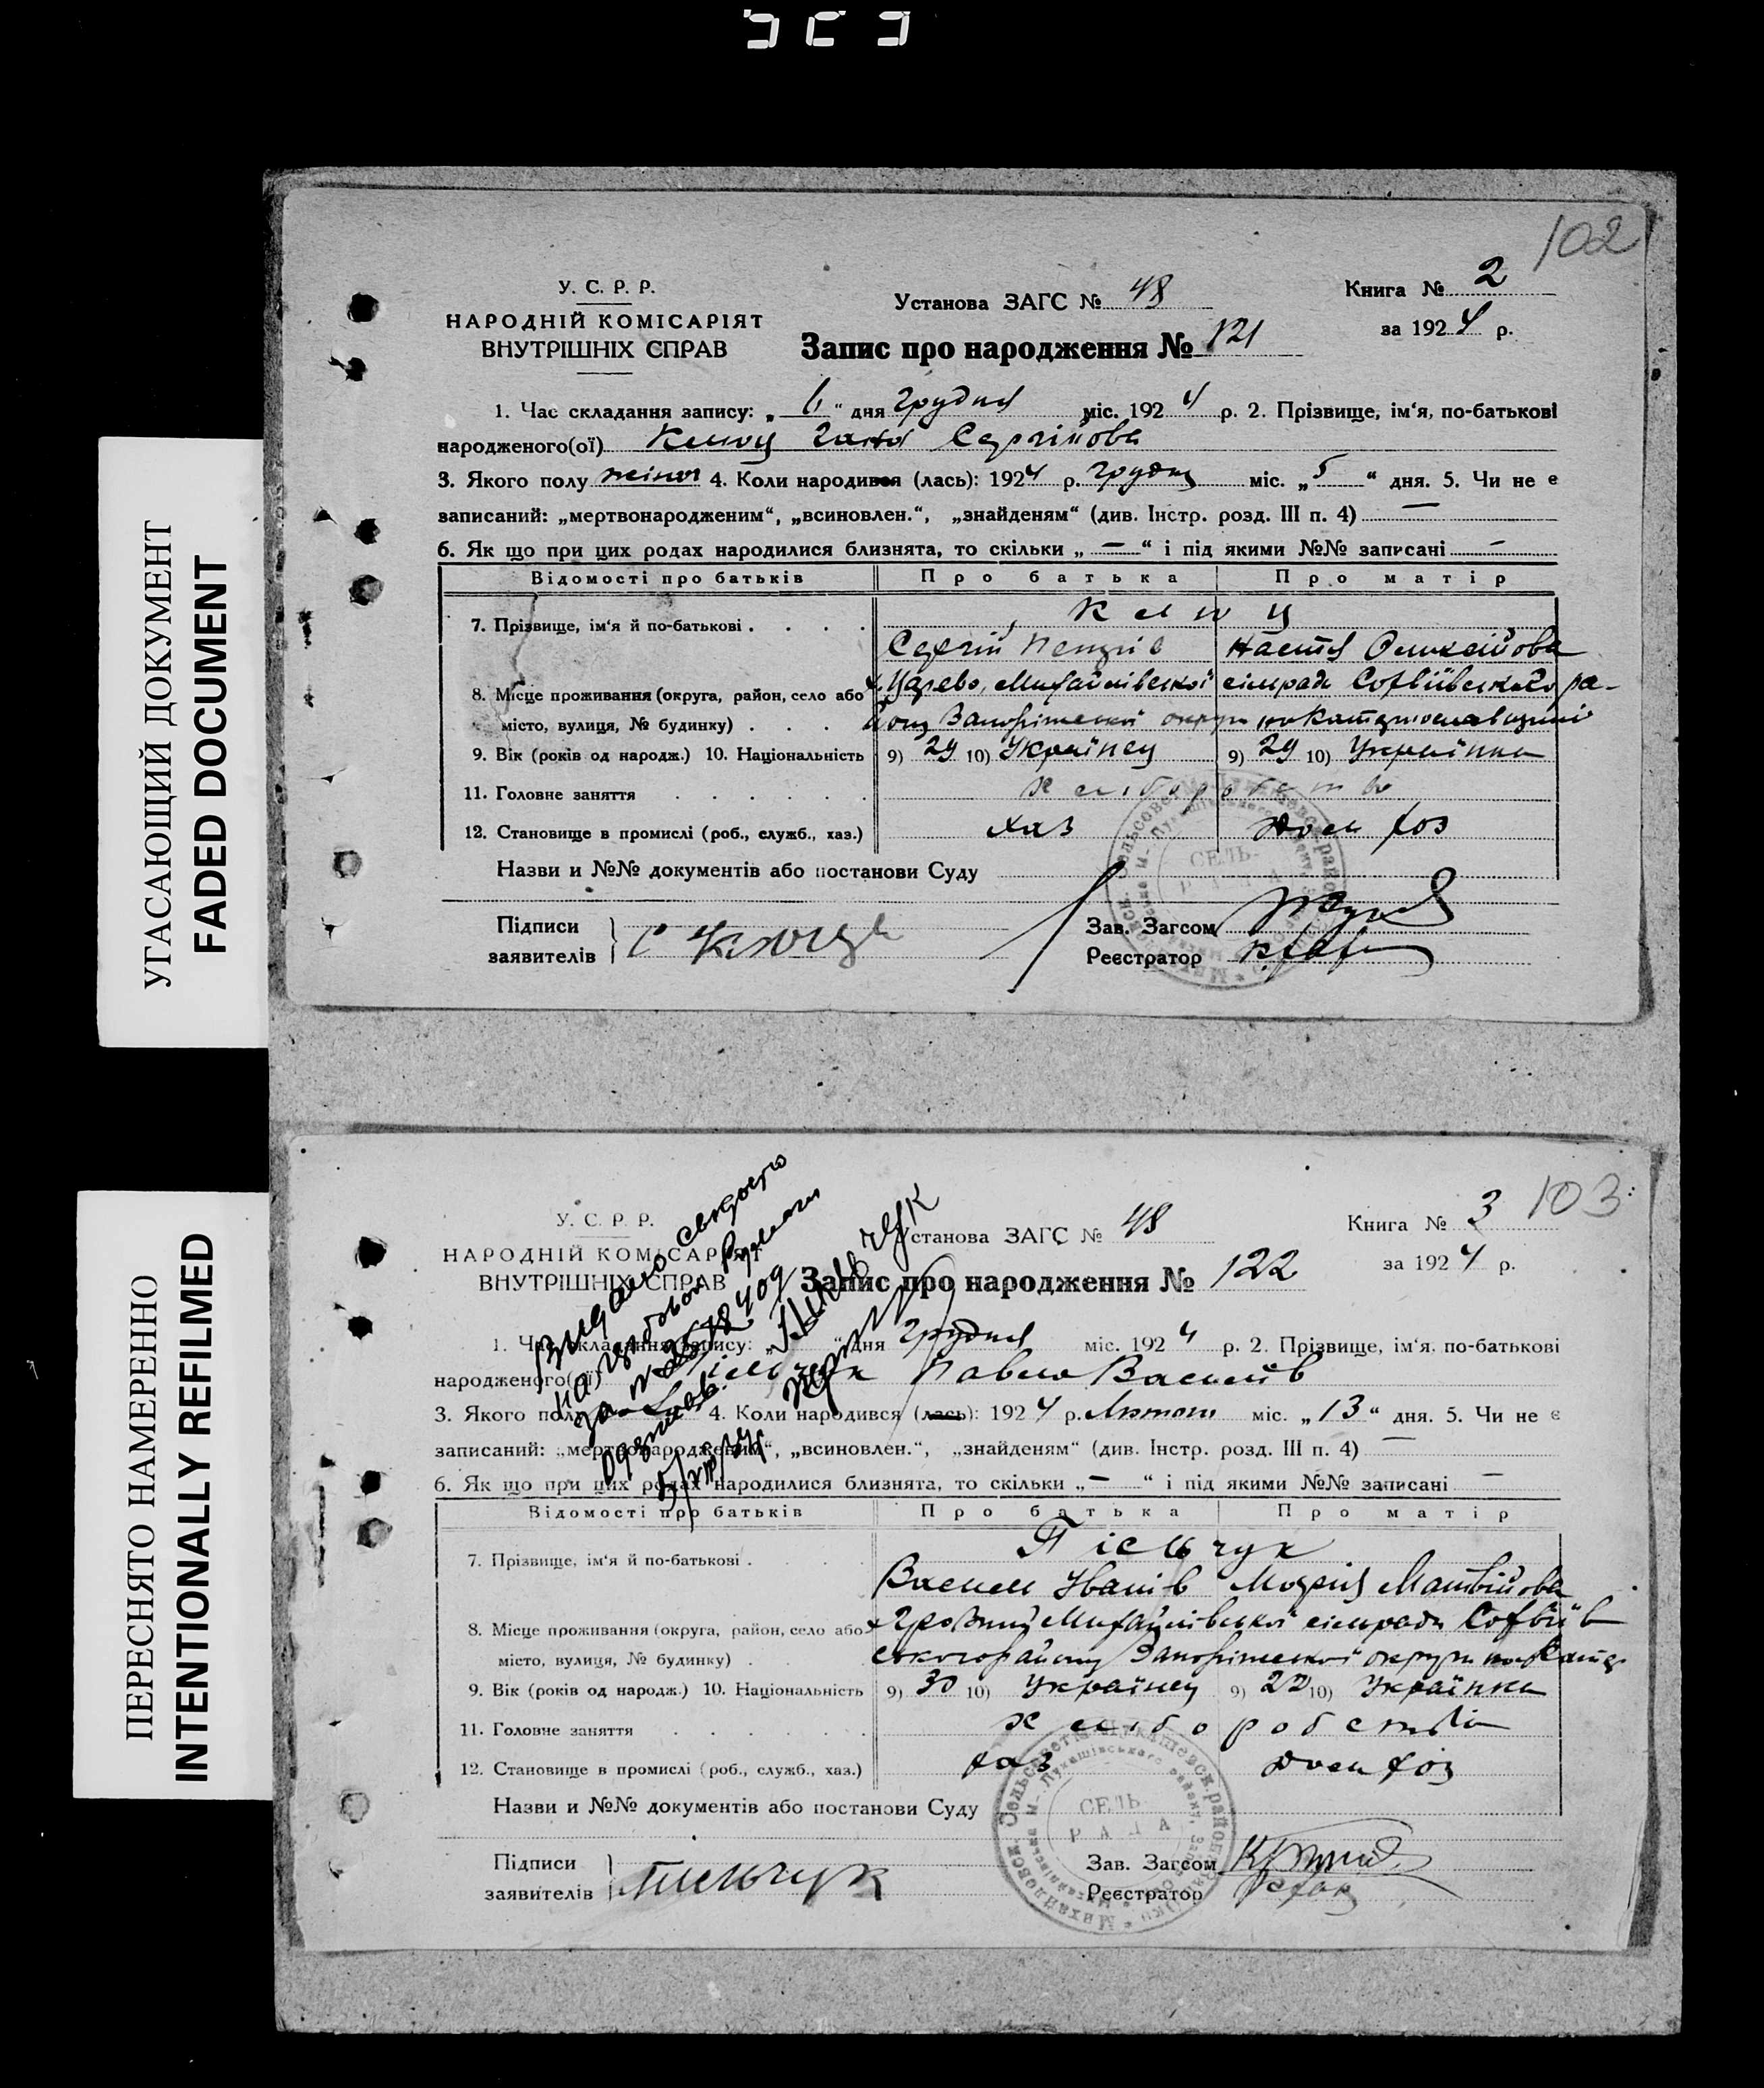 УГАСАЮЩИЙ ДОКУМЕНТ
FADED DOCUMENT
102
У. С. Р. Р.
НАРОДНІЙ КОМІСАРІЯТ
ВНУТРІШНІХ СПРАВ
Установа ЗАГС № 48
Книга № 2
за 1924 р.
Запис про народження № 121
1. Час складання запису: „6“ дня Грудня міс. 1924 р. 2. Прізвище, ім‘я, по-батькові
народженого(ої) Клюц Сергійова
3. Якого полу жіноч 4. Коли народився (лась): 1924 р. грудня міс. „5“ дня. 5. Чи не є
записаний: „мертвонародженим“, „всиновлен.“, „знайденям“ (див. Інстр. розд. III п. 4) —
6. Як що при цих родах народилися близнята, то скільки „—“ і під якими №№ записані —
Відомості про батьків Про батька Про матір
7. Прізвище, ім‘я й по-батькові . . . . Клюц
Сергій Петрів Настя Олексійова
8. Місце проживання (округа, район, село або х. Царево, Михайлівської сільради Софіївського ра-
місто, вулиця, № будинку) . . . йону Запоріжської округи на Катеринославщині
9. Вік (років од народж.) 10. Національність 9) 29 10) Українец 9) 29 10) Українка
11. Головне заняття . . . . . . Хліборобство
12. Становище в промислі (роб., служб., хаз.) хаз Дом хоз
Назви и №№ документів або постанови Суду
Підписи
заявителів С Клюц
Зав. Загсом
Реєстратор
СЕЛЬ-
РАДА
ПЕРЕСНЯТО НАМЕРЕННО
INTENTIONALLY REFILMED
103
У. С. Р. Р.
НАРОДНІЙ КОМІСАРІЯТ
ВНУТРІШНІХ СПРАВ
Установа ЗАГС № 48
Книга № 3
за 1924 р.
Запис про народження № 122
Видано
Пильчук
1. Час складання запису: „ “ дня Грудня міс. 1924 р. 2. Прізвище, ім‘я, по-батькові
народженого(ої) Пільчук Павло Василів
3. Якого полу 4. Коли народився (лась): 1924 р. Лютого міс. „13“ дня. 5. Чи не є
записаний: „мертвонародженим“, „всиновлен.“, „знайденям“ (див. Інстр. розд. III п. 4) —
6. Як що при цих родах народилися близнята, то скільки „—“ і під якими №№ записані —
Відомості про батьків Про батька Про матір
7. Прізвище, ім‘я й по-батькові . . . . Пільчук
Василь Іванів Марія Матвійова
8. Місце проживання (округа, район, село або х Грозний Михайлівської сільради Софіїв
місто, вулиця, № будинку) . . ського району Запоріжської округи на Катер.
9. Вік (років од народж.) 10. Національність 9) 30 10) Українец 9) 22 10) Українка
11. Головне заняття . . . . . . Хліборобство
12. Становище в промислі (роб., служб., хаз.) хаз Дом хоз
Назви и №№ документів або постанови Суду
СЕЛЬ-
РАДА
Підписи
заявителів Пильчук
Зав. Загсом
Реєстратор